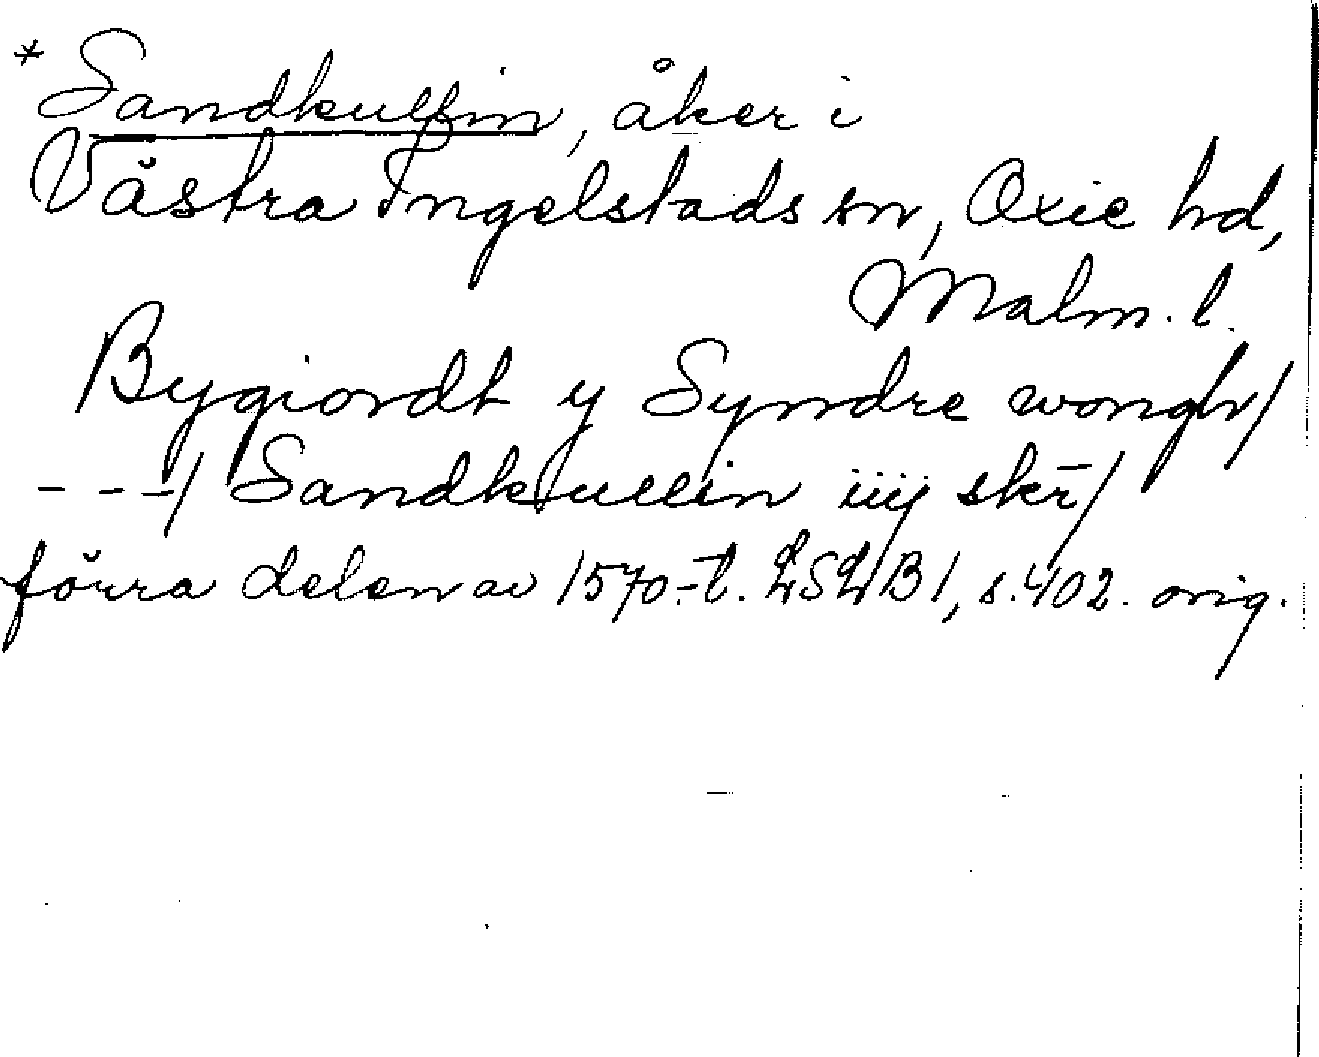 * Sandkullin, åker i
Västra Ingelstads sn, Oxie hd,
Malm. l.
Bygiordt y Syndre wongh/
- - -/ Sandkullin iiij skr̄/
förra delen av 1570-t. LSLB1, s. 402. orig.